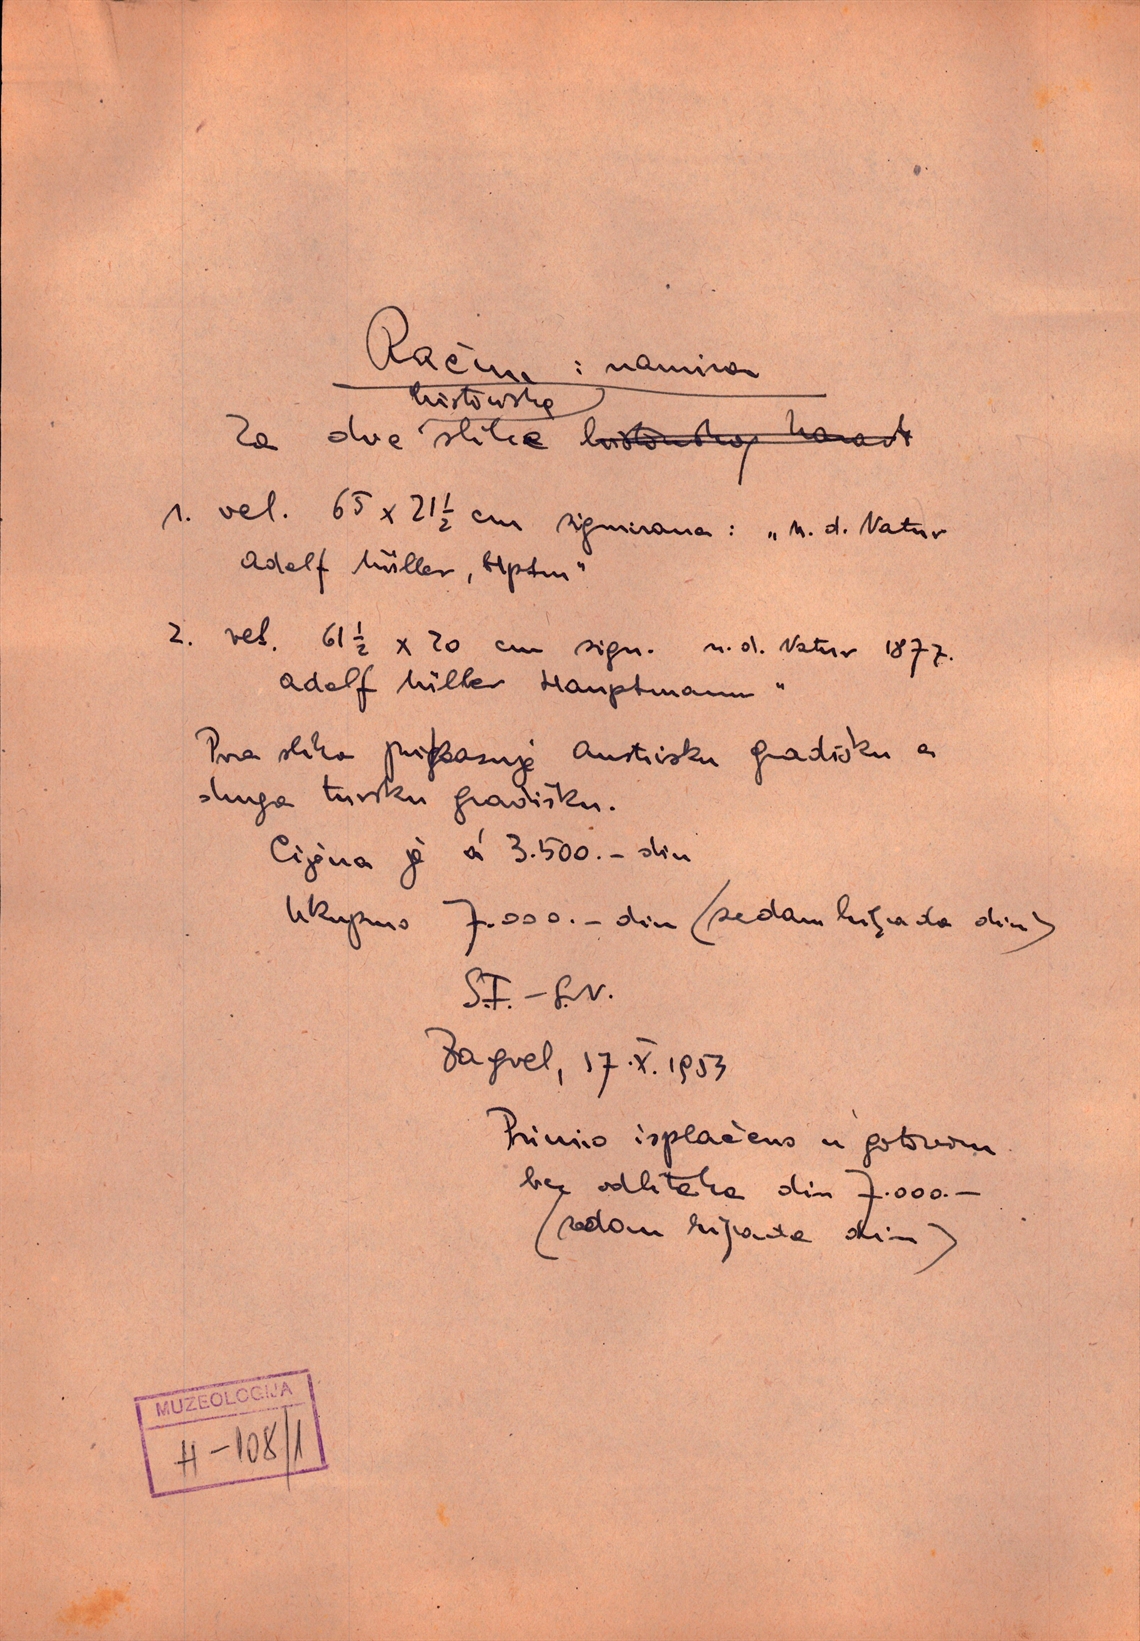 Račun i namira
historijske
Za dve slike
1. vel. 65 x 21 1/2 cm signirana: „n. d. Natur
Adolf Müller, Hptm"
2. vel. 61 1/2 x 20 cm sign. n. d. Natur 1877.
Adolf Müller Hauptmann"
Prva slika prikazuje Austrisku gradišku a
druga tursku gradišku.
Cijena je á 3.500.- din
Ukupno 7.000.- din (sedam hiljada din)
S.F. - S.N.
Zagreb, 17.X.1953
Primio isplaćeno u gotovom
bez odbitaka din 7.000.-
(sedam hiljada din)
MUZEOLOGIJA
H-108/1